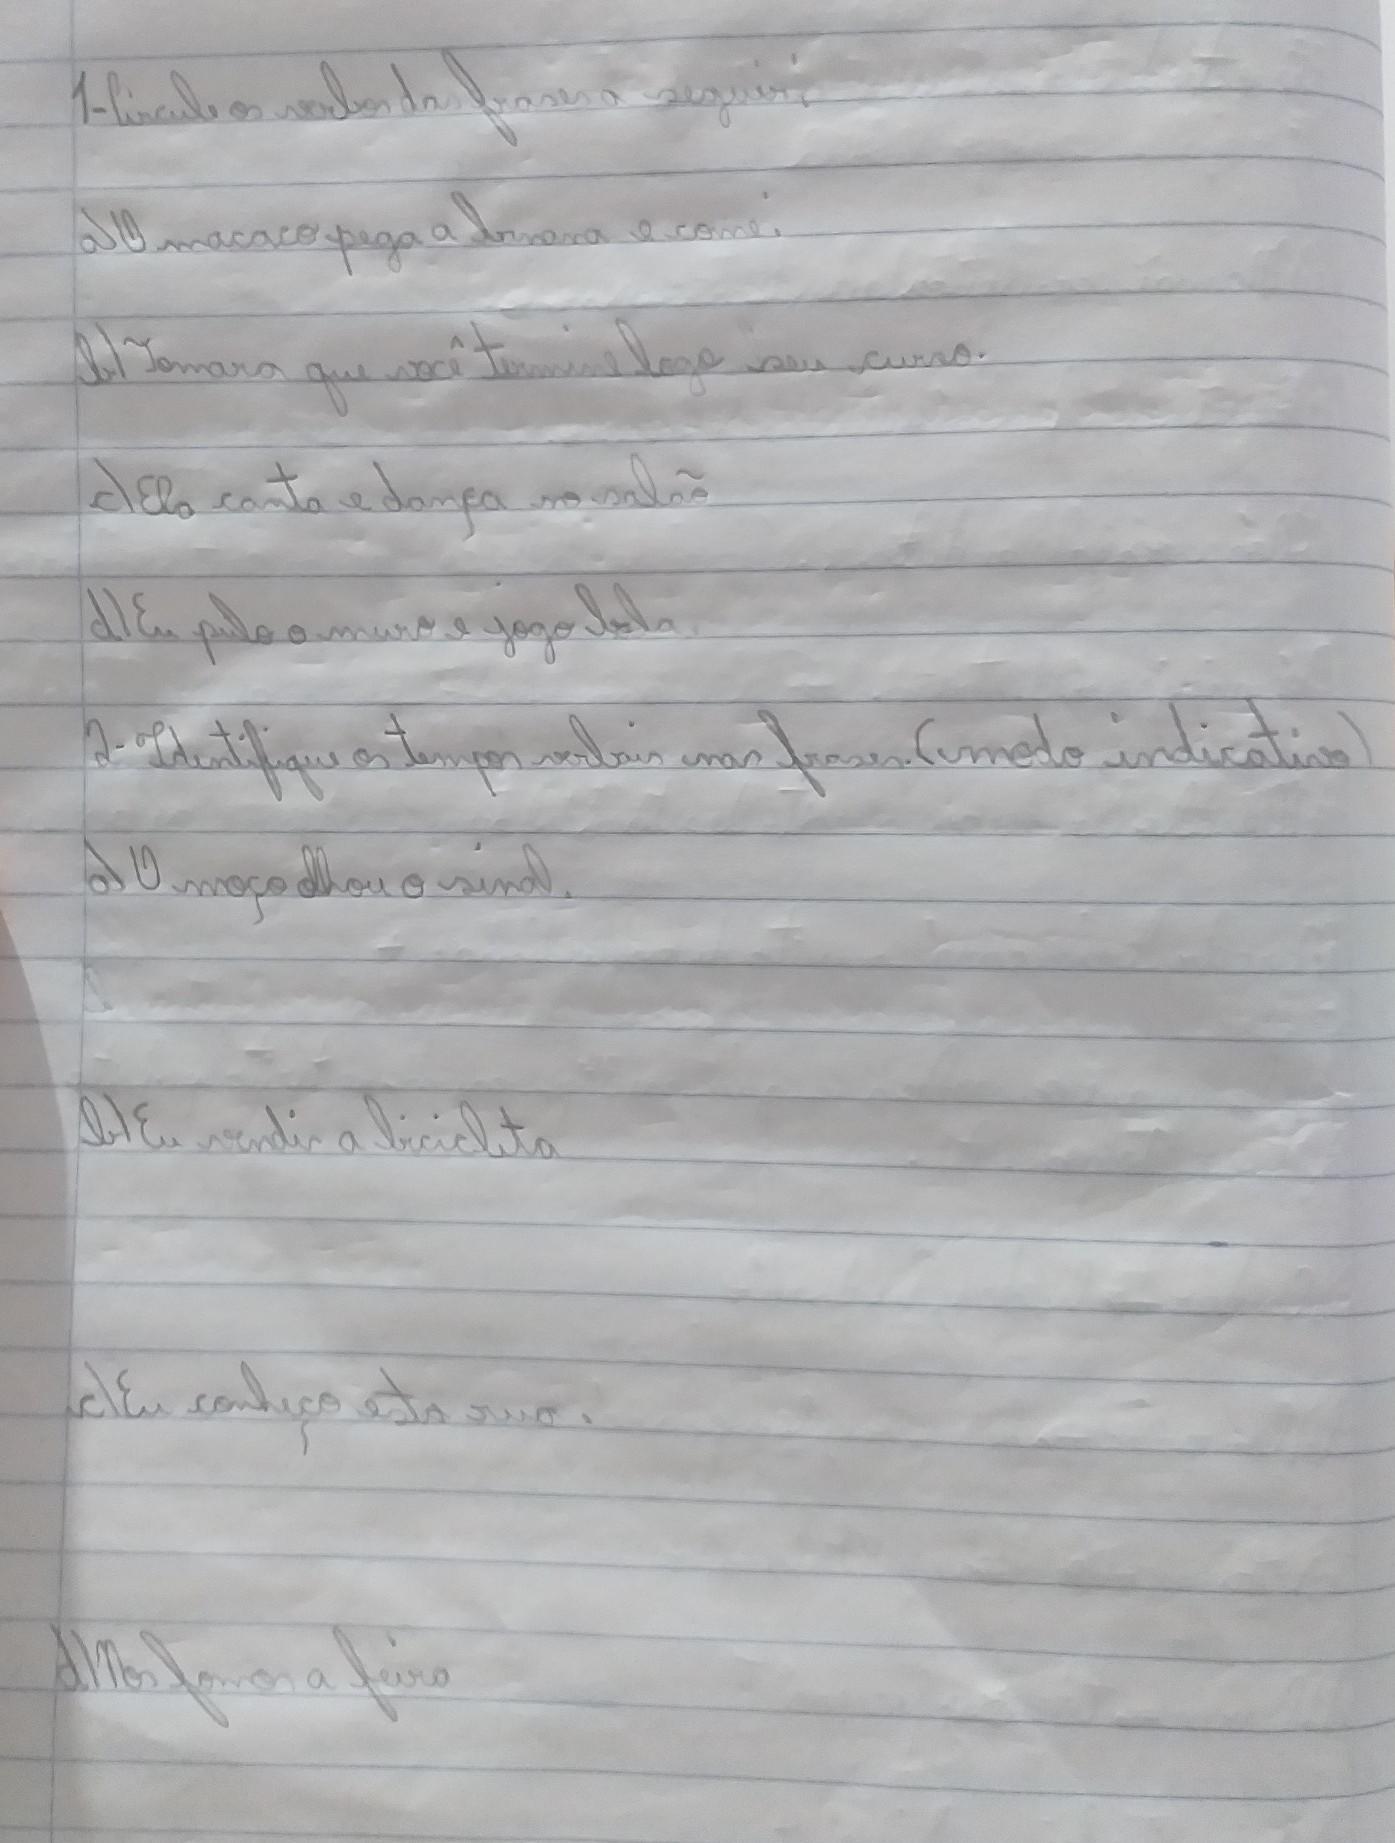 1-Circule os verbos das frases a seguir:
a) O macaco pega a banana e come.
b) Tomara que você termine logo seu curso.
c) Ela canta e dança no salão
d) Eu pulo o muro e jogo bola.
2- Identifique os tempos verbais nas frases. (modo indicativo)
a) O moço olhou o sinal.
b) Eu vendi a bicicleta
c) Eu conheço esta rua.
d) Nos fomos a feira